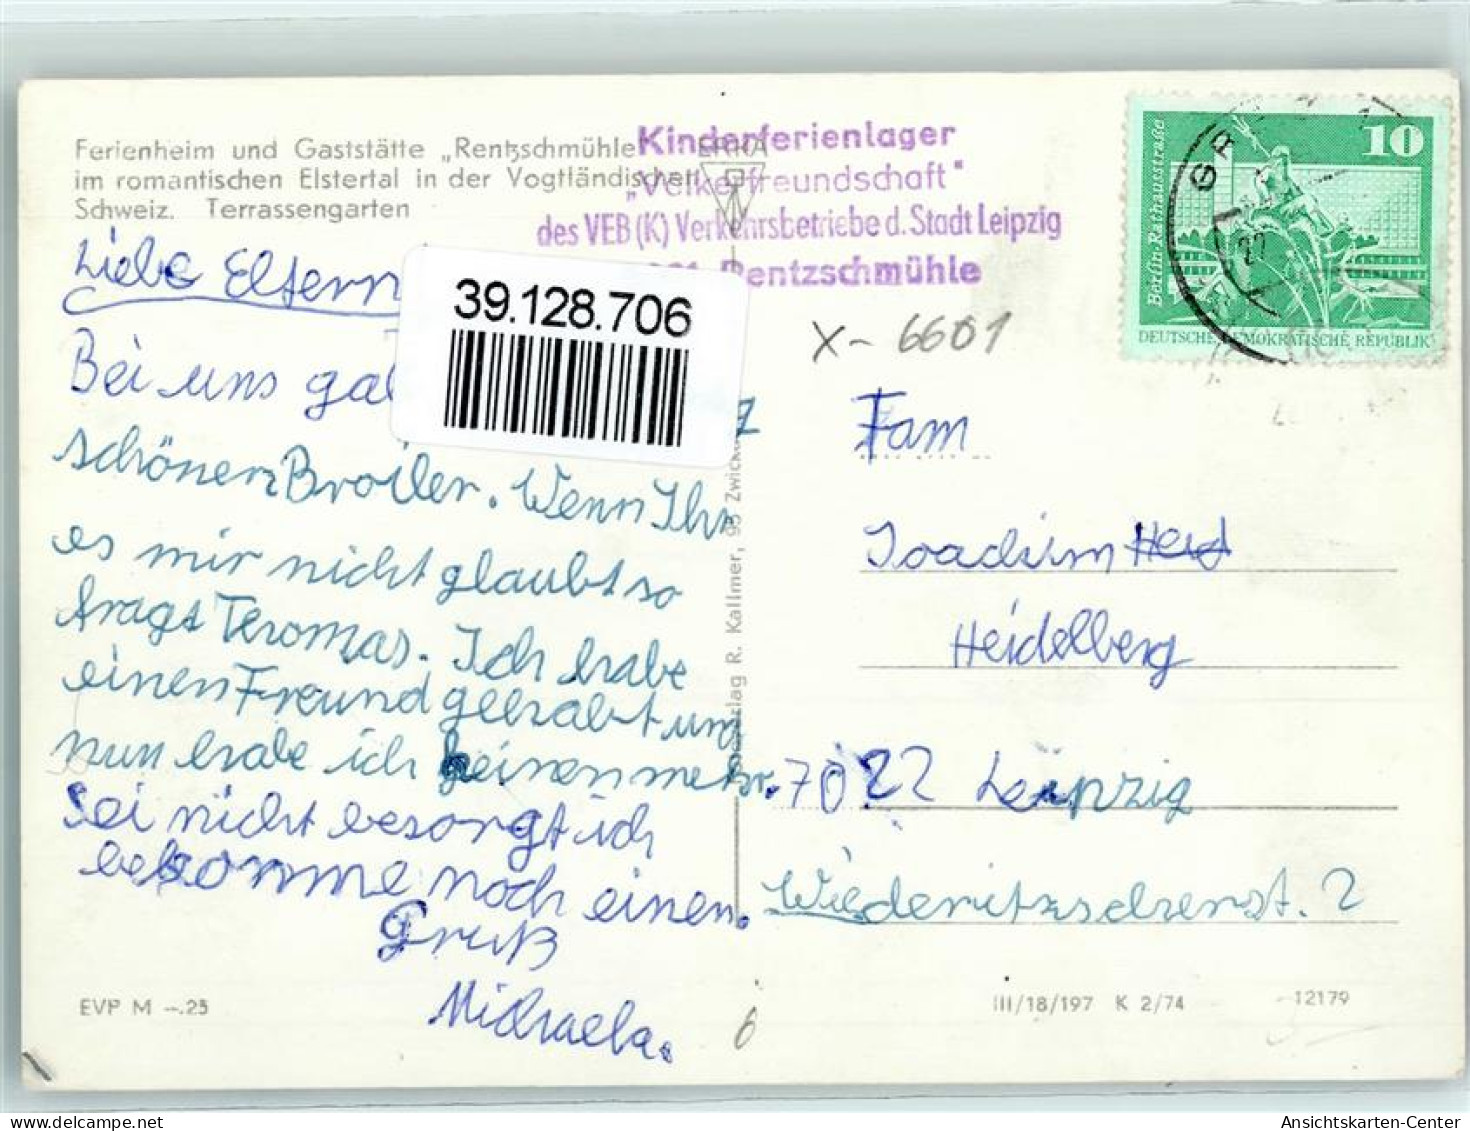 Ferienheim und Gaststätte „Rentzschmühle"
im romantischen Elstertal in der Vogtländischen
Schweiz. Terrassengarten
Kinderferienlager
„Völkerfreundschaft"
des VEB (K) Verkehrsbetriebe d. Stadt Leipzig
Rentzschmühle
ERKA
10
Berlin-Rathausstraße
DEUTSCHE DEMOKRATISCHE REPUBLIK
GR
27
X- 6601
39.128.706
Liebe Eltern
Bei uns ga
schönen Broiler. Wenn Ihr
es mir nicht glaubt so
fragt Teromas. Ich habe
einen Freund gehabt und
nun habe ich keinen mehr.
Sei nicht besorgt ich
bekomme noch einen.
Gruß
Michaela.
Fam
Joachim Heid
Heidelberg
7022 Leipzig
Wiederitzscherst. 2
Verlag R. Kallmer, 95 Zwick
EVP M -.25
III/18/197 K 2/74
12179
6
Ansichtskarten-Center